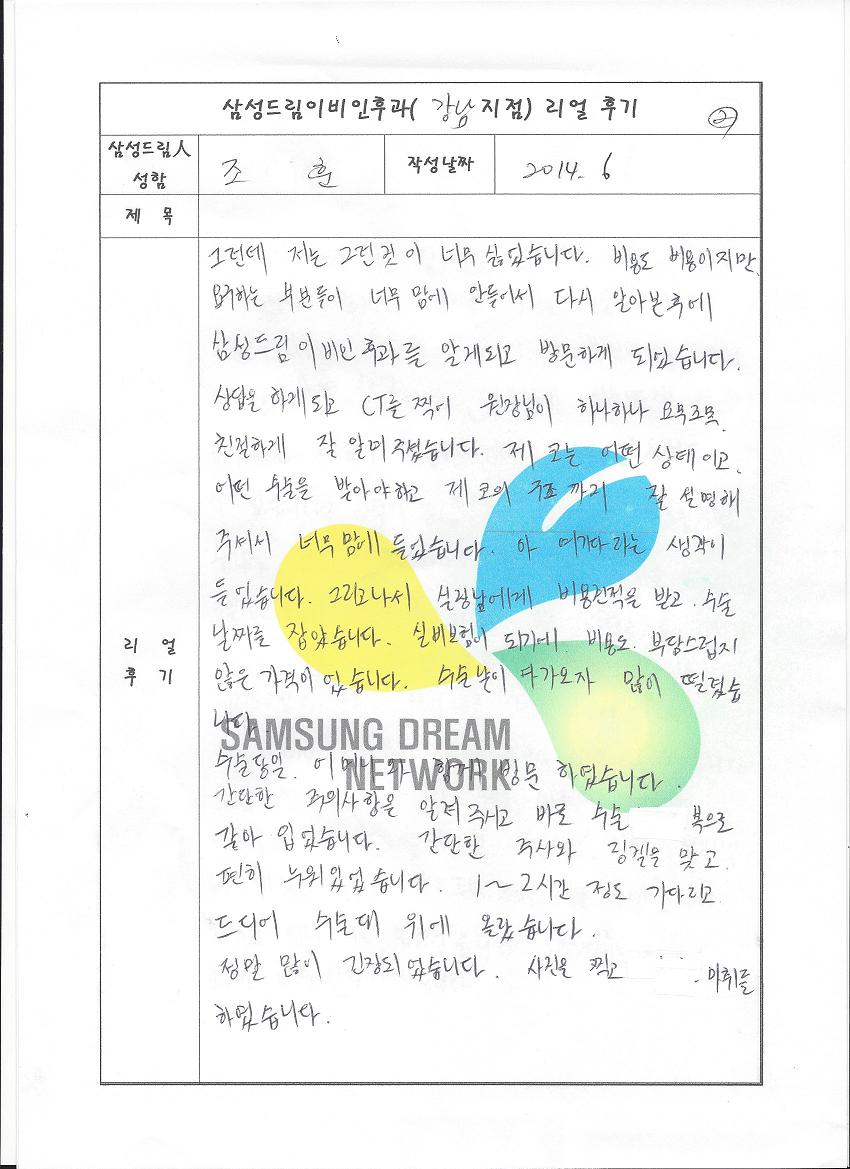 삼성드림이비인후과( 강남 지점) 리얼 후기
②
삼성드림人 성함
조 훈
작성날짜
2014. 6
제 목
리 얼 후 기
그런데 저는 그런것이 너무 싫었습니다. 비용도 비용이지만,
요구하는 부분들이 너무 맘에 안들어서 다시 알아본후에
삼성드림이비인후과를 알게되고 방문하게 되었습니다.
상담을 하게되고 CT를 찍어 원장님이 하나하나 요목조목
친절하게 잘 알려주셨습니다. 제 코는 어떤 상태이고,
어떤 수술을 받아야하고 제 코의 구조까지 잘 설명해
주셔서 너무 맘에 들었습니다. 아 여기다 라는 생각이
들었습니다. 그리고나서 실장님에게 비용견적을 받고. 수술
날짜를 잡았습니다. 실비보험이 되기에. 비용도. 부담스럽지
않은 가격이었습니다. 수술날이 다가오자 많이 떨렸습
니다.
수술당일. 어머니와 함께 방문 하였습니다.
간단한 주의사항을 알려주시고 바로 수술 복으로
갈아 입었습니다. 간단한 주사와 링겔을 맞고.
편히 누워있었습니다. 1~2시간 정도 기다리고
드디어 수술대 위에 올랐습니다.
정말 많이 긴장되었습니다. 사진을 찍고 마취를
하였습니다.
SAMSUNG DREAM
NETWORK